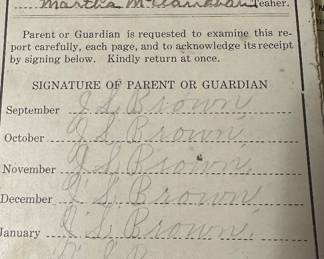 Martha Teaher.
Parent or Guardian is requested to examine this re-
port carefully, each page, and to acknowledge its receipt
by signing below. Kindly return at once.
SIGNATURE OF PARENT OR GUARDIAN
September J. S. Brown,
October J. S. Brown,
November J. S. Brown,
December J. S. Brown,
January J. S. Brown,